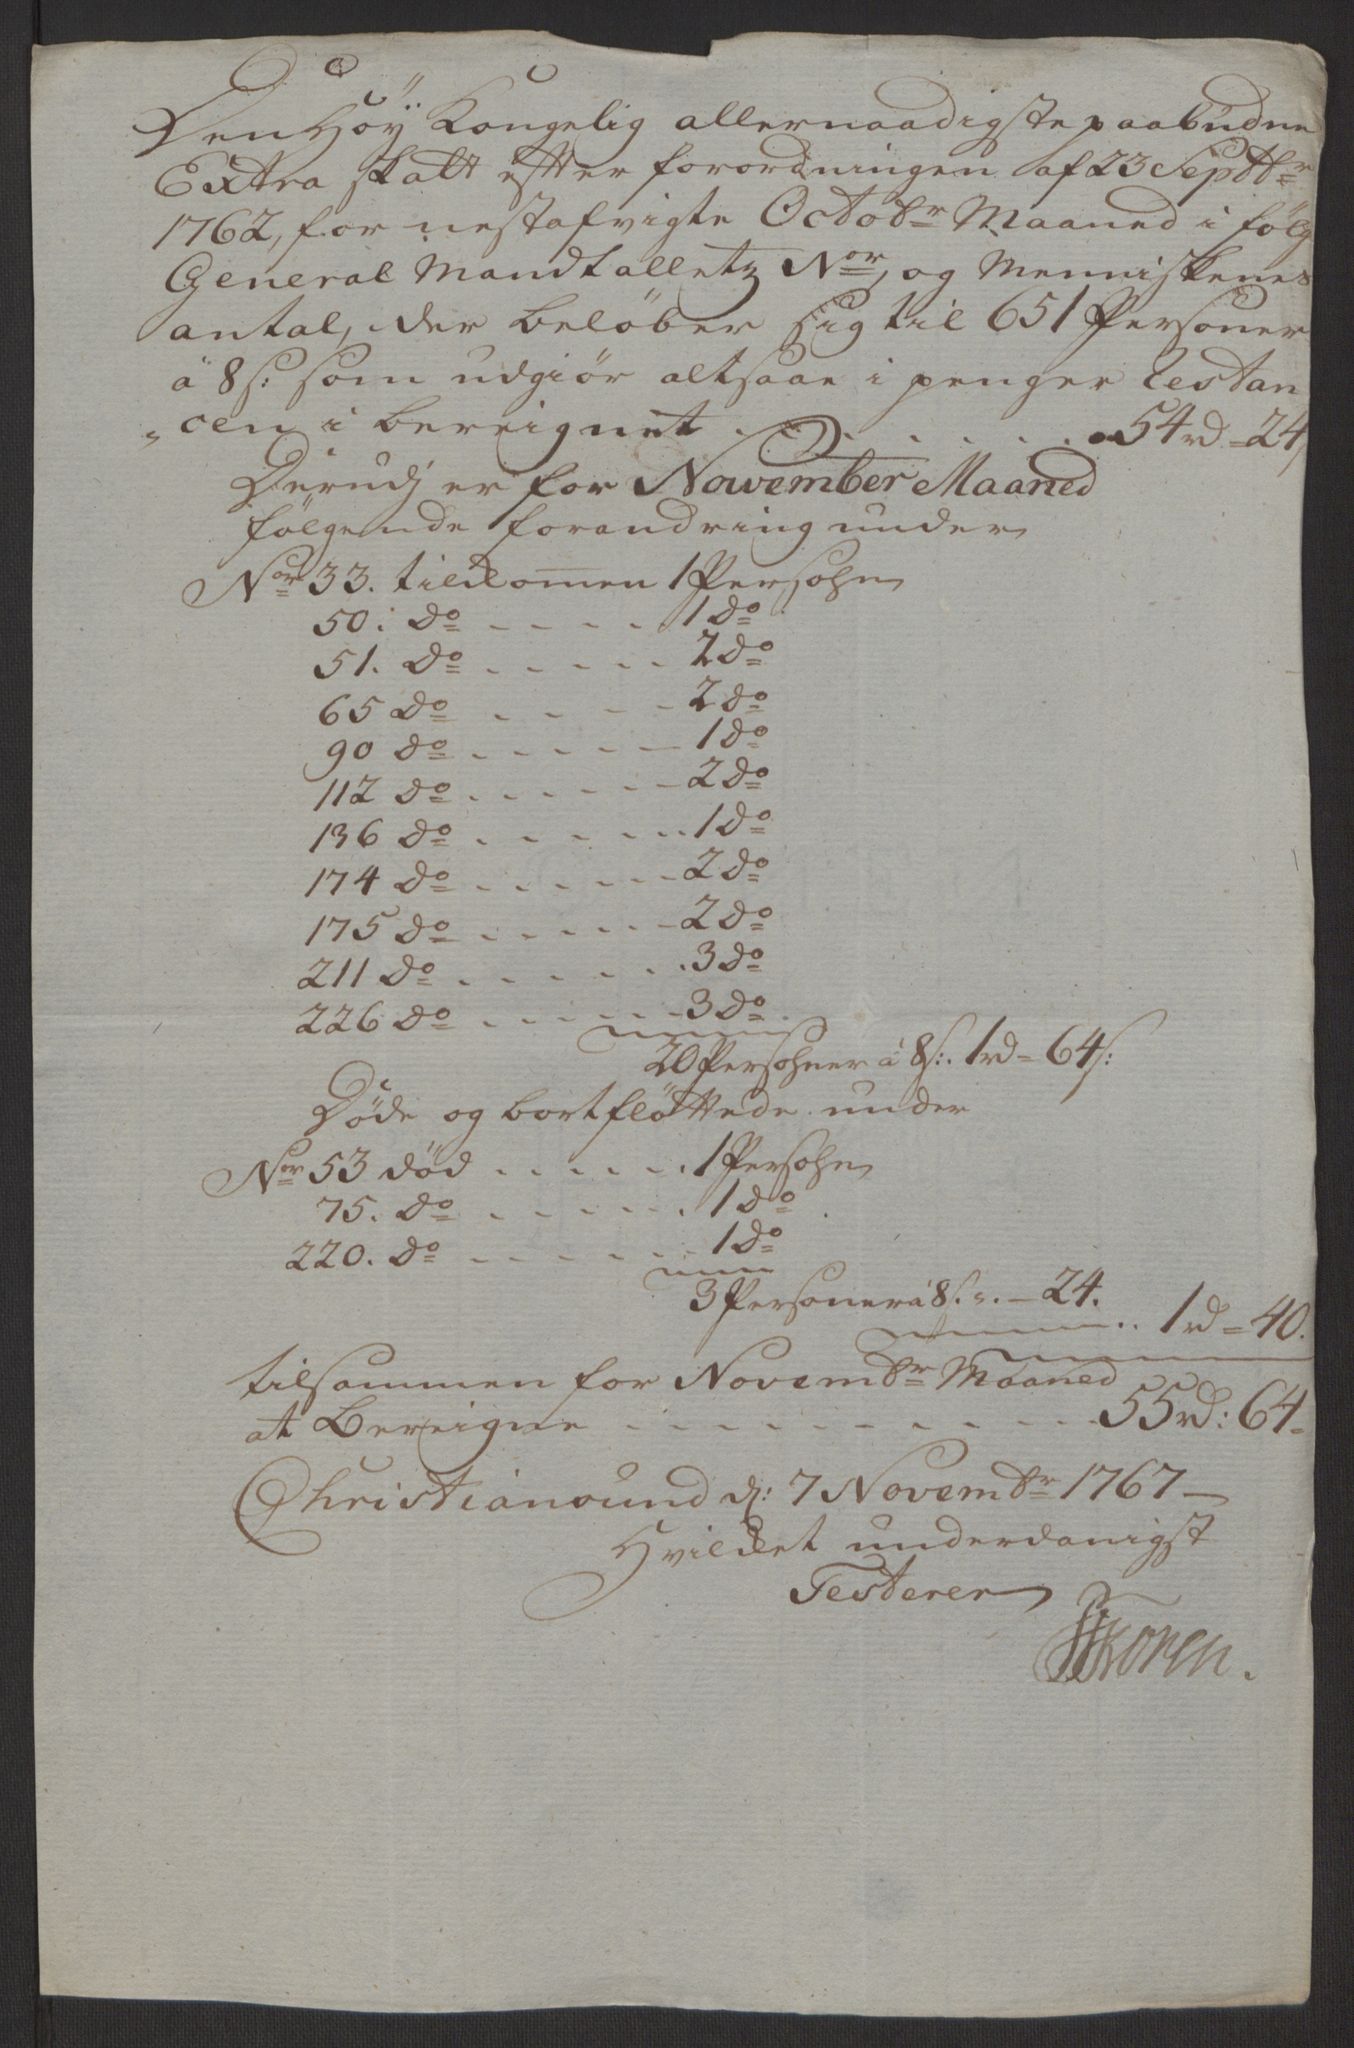 Den Höÿ Kongelig allernaadigste paabudne
Extra skatt efter forordningen af 23 Septbr
1762, for nestafvigte Octobr Maaned i følg
General Mandtalletz Nor, og Menniskenes
antal, der beløber sig til 651 Personer
á 8s: som udgiør altsaae i penger
cen i bereignet . . . . . . . 54rd - 24
Derudj er for November Maaned
følgende forandring under
Nor 33. tilkomen 1 Persohn
50: do - - - - - 1 do
51. do - - - - - 2 do
65 do - - - - 2 do
90 do - - - - - 1 do
112 do - - - - - 2 do
136 do - - - - - 1 do
174 do - - - - - 2 do
175 do - - - - - 2 do
211 do - - - - - 3 do
226 do - - - - - 3 do
20 Persohner á 8s: 1rd - 64s:
Døde og bortfløttede under
Nor 53 död - - - - - 1 Persohn
75. do - - - - - 1 do
220. do - - - - - 1 do
3 Personer á 8s. - 24.
1rd - 40.
tilsammen for Novembr Maaned
at Bereigne - - - - - - - - 55rd: 64
Christiansund d: 7 Novembr 1767
Hvilket underdanigst
Testerer
Koren.